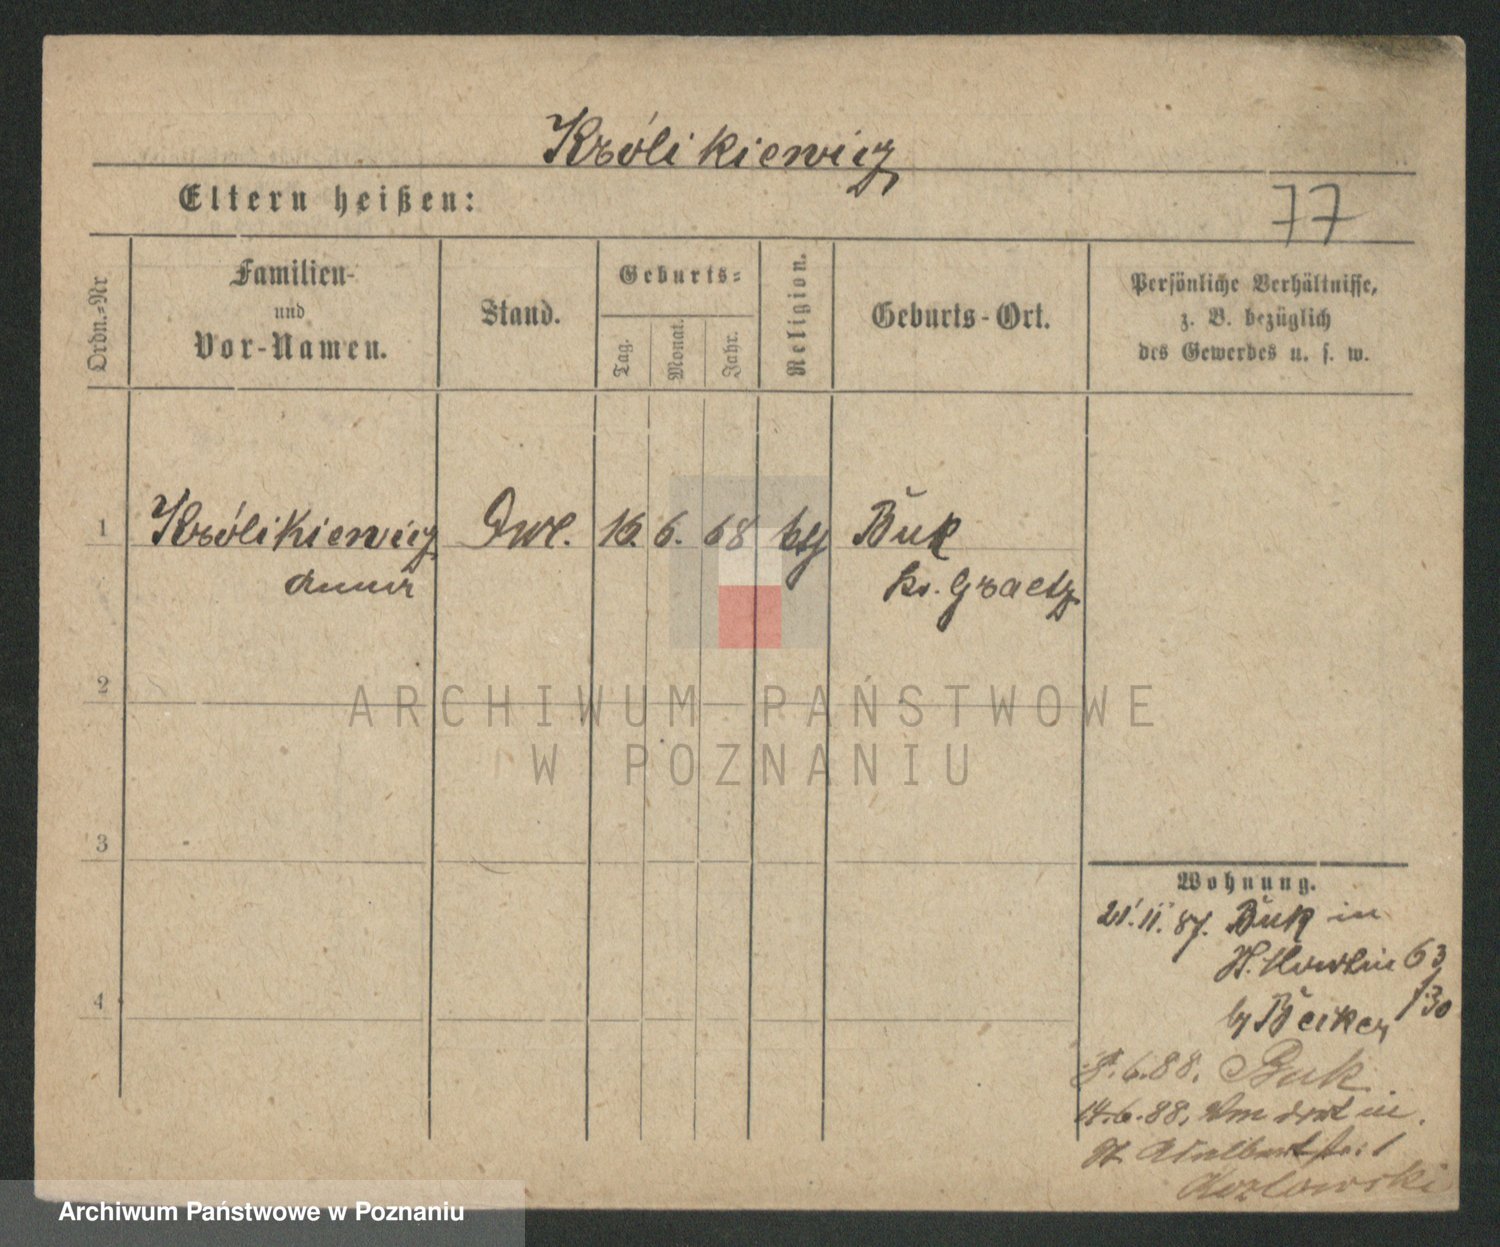 Królikiewicz
Eltern heißen:
77
Ordn.-Nr
Familien-
und
Vor-Namen.
Stand.
Geburts-
Tag.
Monat.
Jahr.
Religion.
Geburts-Ort.
Persönliche Verhältnisse,
z. B. bezüglich
des Gewerbes u. s. w.
1 Królikiewicz 16. 6. 68 Buk
Anna Kr. Graetz
2
ARCHIWUM PAŃSTWOWE
W POZNANIU
3
4
Wohnung.
21. 11. 87. Buk in
St. Martin 63
by Becker 130
6.88. Buk
14.6.88. Von dort in
St. Adalbertstr. 1
Kozlowski
Archiwum Państwowe w Poznaniu